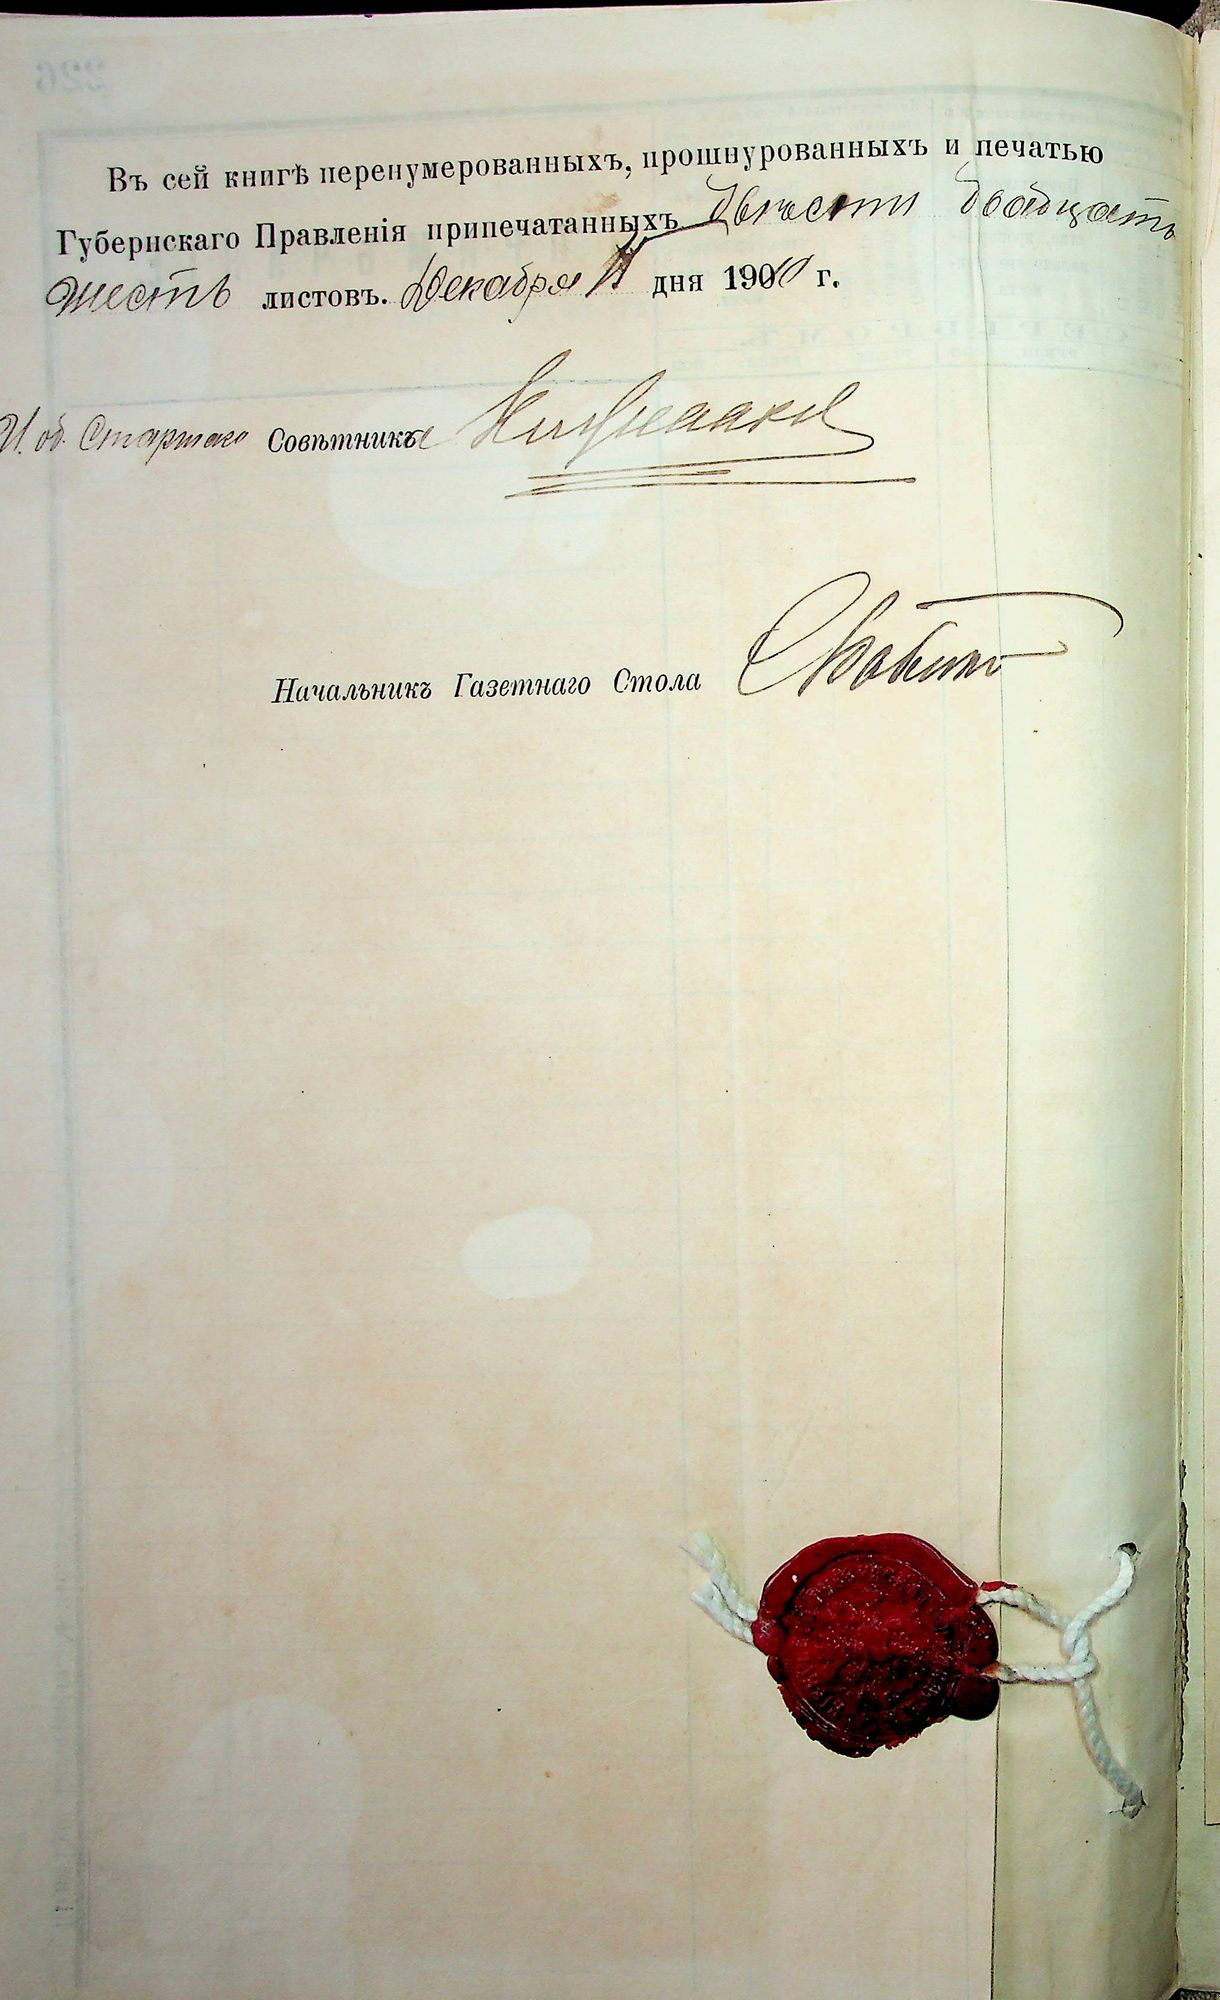 Въ сей книгѣ перенумерованныхъ, прошнурованныхъ и печатью
Губернскаго Правленія припечатанныхъ двѣсти двадцать
шесть листовъ. Декабря дня 1900 г.
И. об. Старшаго Совѣтника
Начальникъ Газетнаго Стола